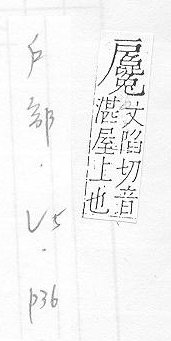 丈陷切音
湛屋上也
戶部.V5.p36